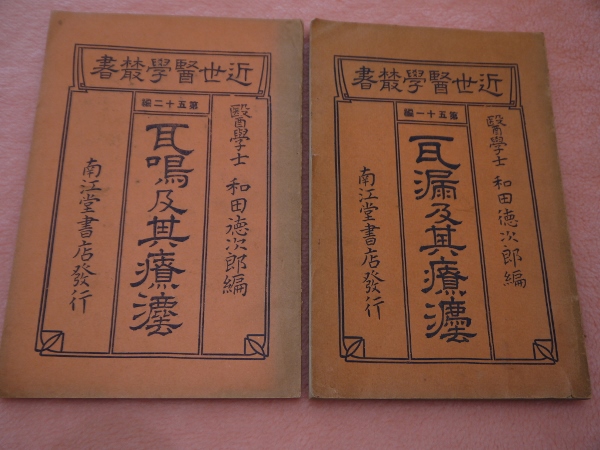 近世醫學叢書
第五十一編
醫學士 和田徳次郎編
耳漏及其療灋
南江堂書店發行
近世醫學叢書
第五十二編
醫學士 和田徳次郎編
耳鳴及其療灋
南江堂書店發行